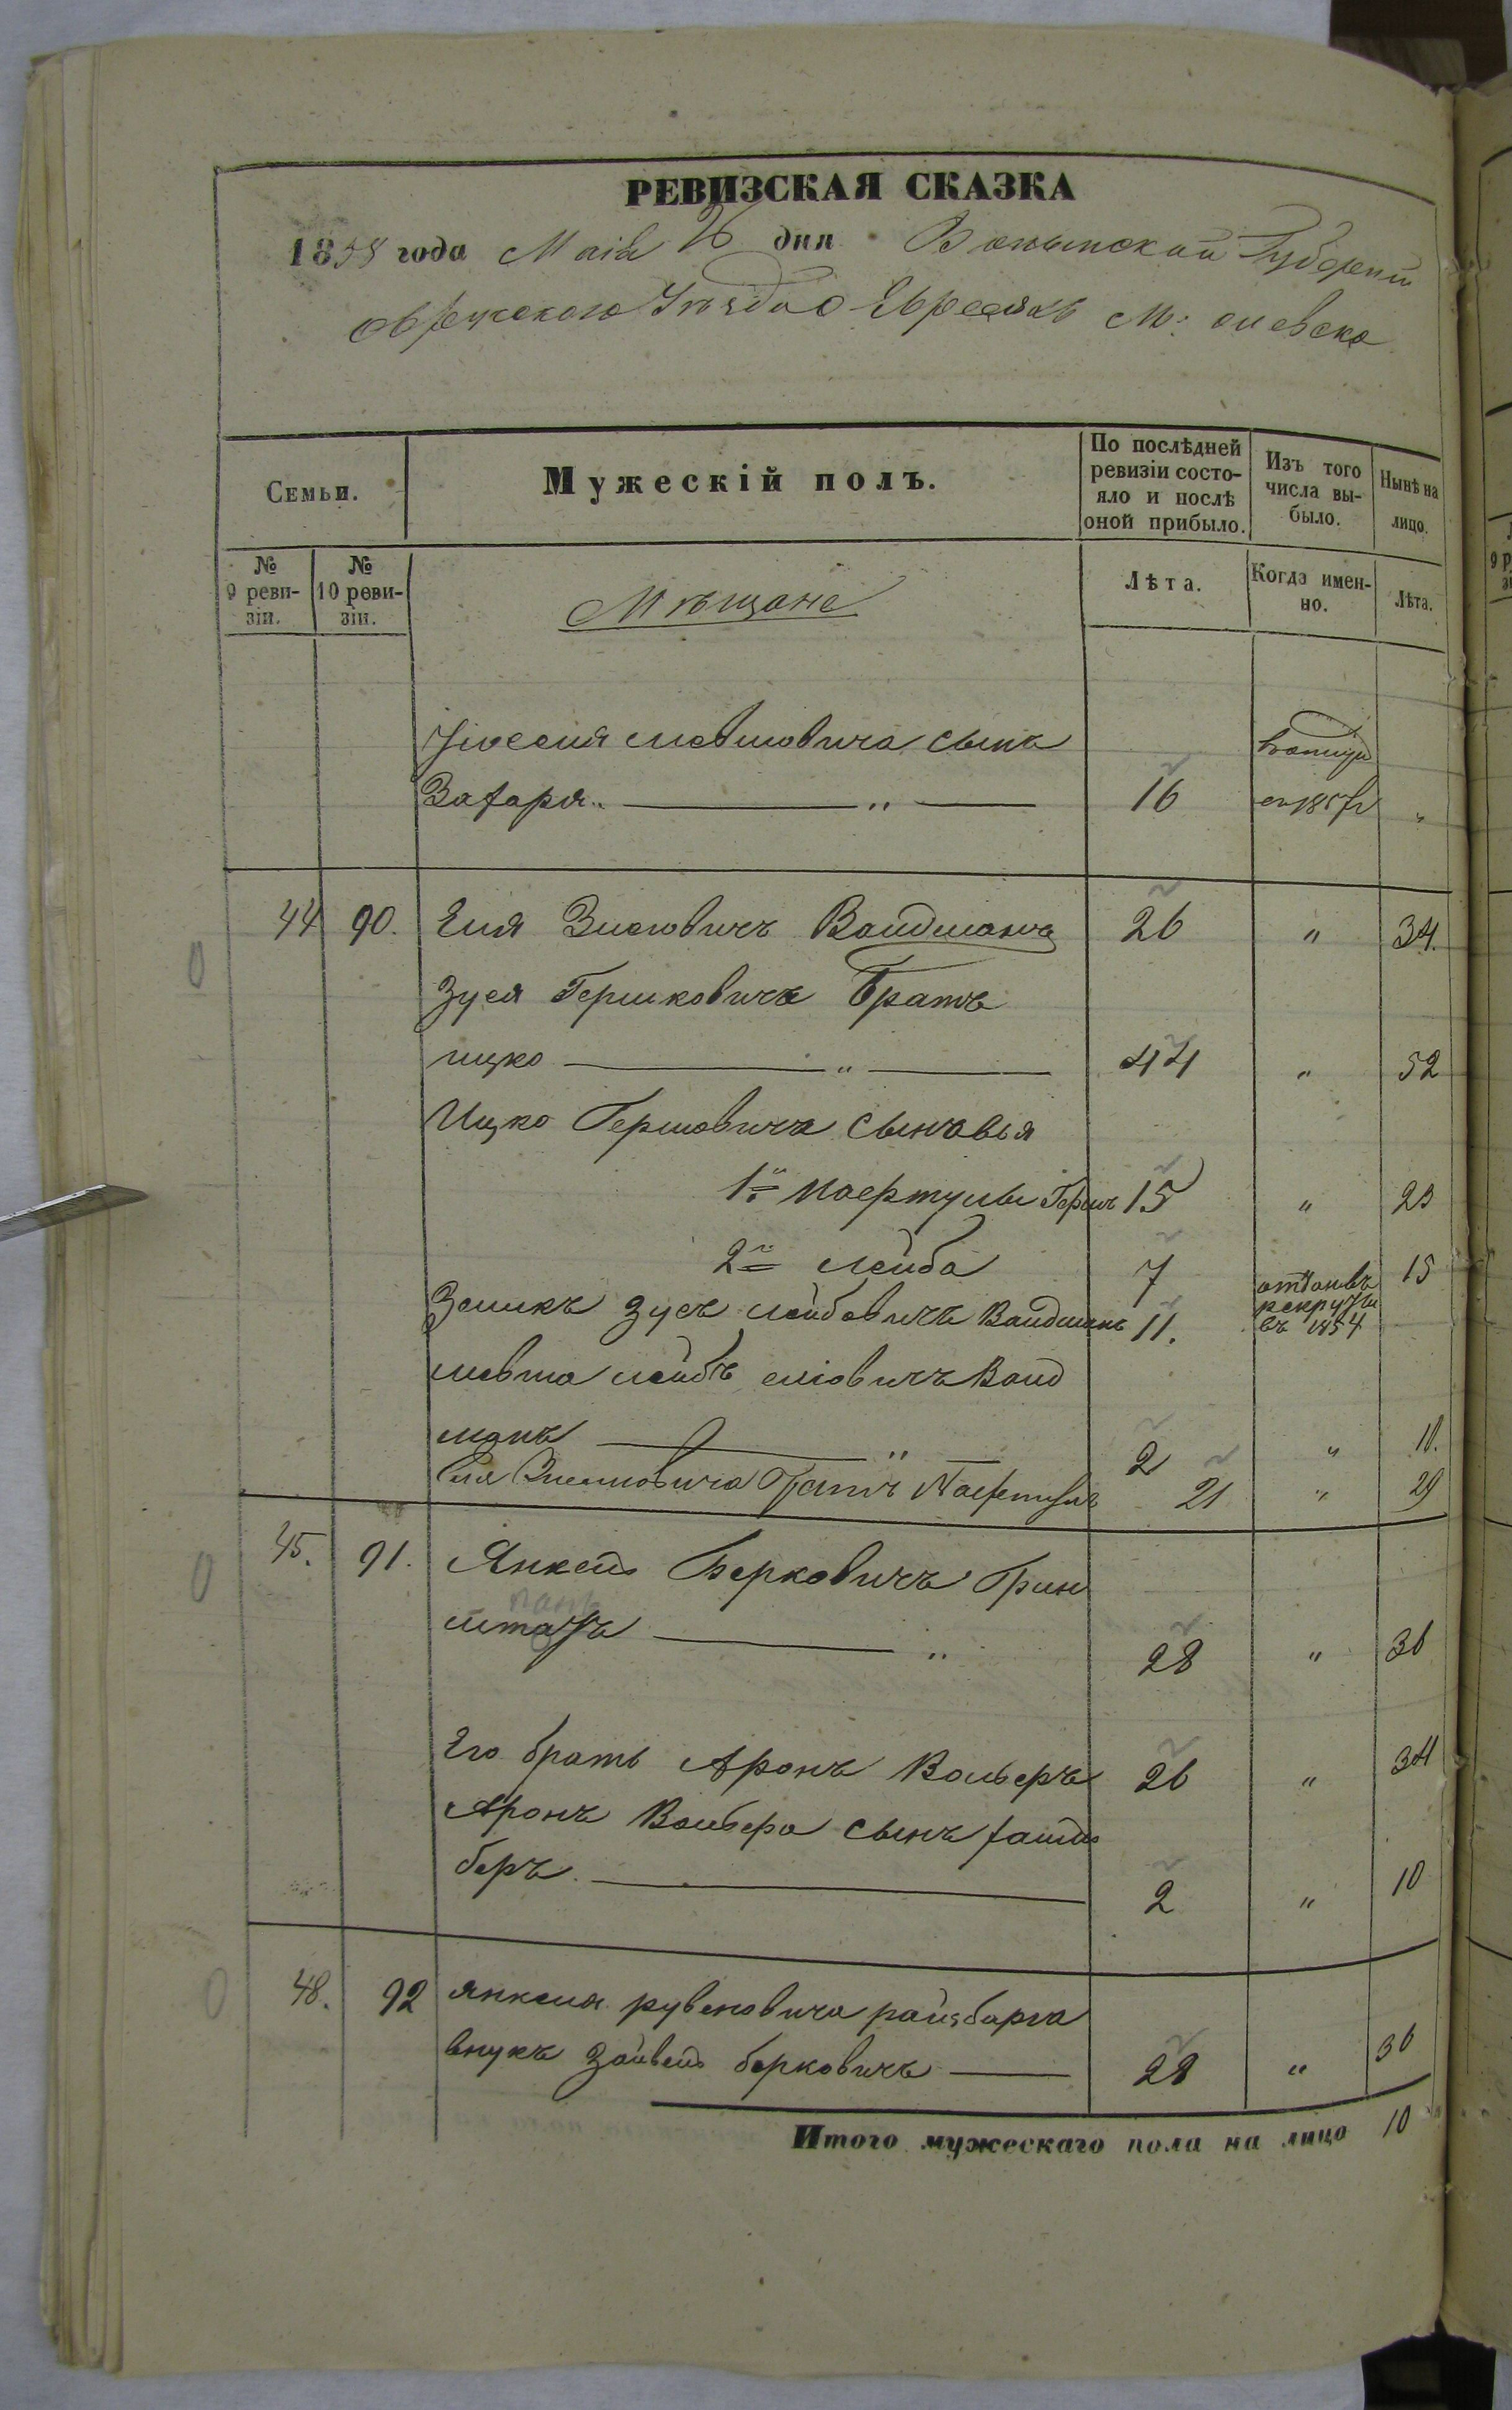 РЕВИЗСКАЯ СКАЗКА
1858 года Маія 26 дня Волынской Губерніи
Овручскаго Уѣзда о Евреяхъ М: Олевска
Семьи.
Мужескій полъ.
По послѣдней ревизіи состояло и послѣ оной прибыло.
Изъ того числа выбыло.
Нынѣ на лицо.
№ 9 ревизіи.
№ 10 ревизіи.
Мѣщане
Лѣта.
Когда именно.
Лѣта.
Іоселя Мовшовича сынъ
Захаря „ 16 1857 „
44 90. Еля Зисовичъ Вайдманъ 26 „ 34.
Зуся Гершковича Братъ
Ицко „ 44 „ 52
Ицко Гершовича сыновья
1й Нафтулы Гершъ 15 „ 23
2й Лейба 7 15
Зеликъ Зусъ Лейбовичъ Вайдманъ 11. отданъ въ рекруты въ 1854
Мовша Лейбъ Еліовичъ Вайд
манъ „ 2 „ 10.
Еля Зисьовича Братъ Нафтулъ 21 „ 29
45. 91. Янкель Берковичъ Грин
штанъ
штатъ „ 28 „ 36
Его братъ Аронъ Вольеръ 26 „ 34
Аронъ Вольера сынъ
беръ. 2 „ 10
48. 92 Янкеля Рувеновича Райзберга
внукъ Зайвель Берковичъ 28 „ 36
Итого мужескаго пола на лицо 10